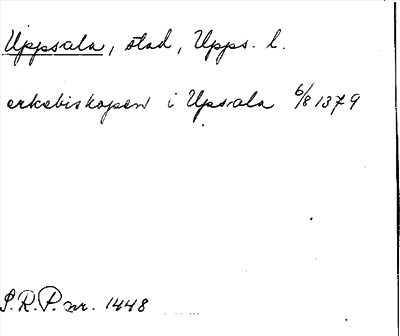 Uppsala, stad, Upps. l.
erkebiskopen i Upsala 6/8 1379
S.R.P. nr. 1448